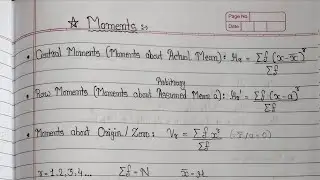 Page No.
Date
☆ Moments :-
• Central Moments (Moments about Actual Mean) : μᵣ = Σf (x-x̄)ʳ / Σf
Arbitrary
• Raw Moments (Moments about Assumed Mean a) : μᵣ' = Σf (x-a)ʳ / Σf
• Moments about Origin / Zero : Vᵣ = Σf xʳ / Σf
r = 1, 2, 3, 4 ... Σf = N